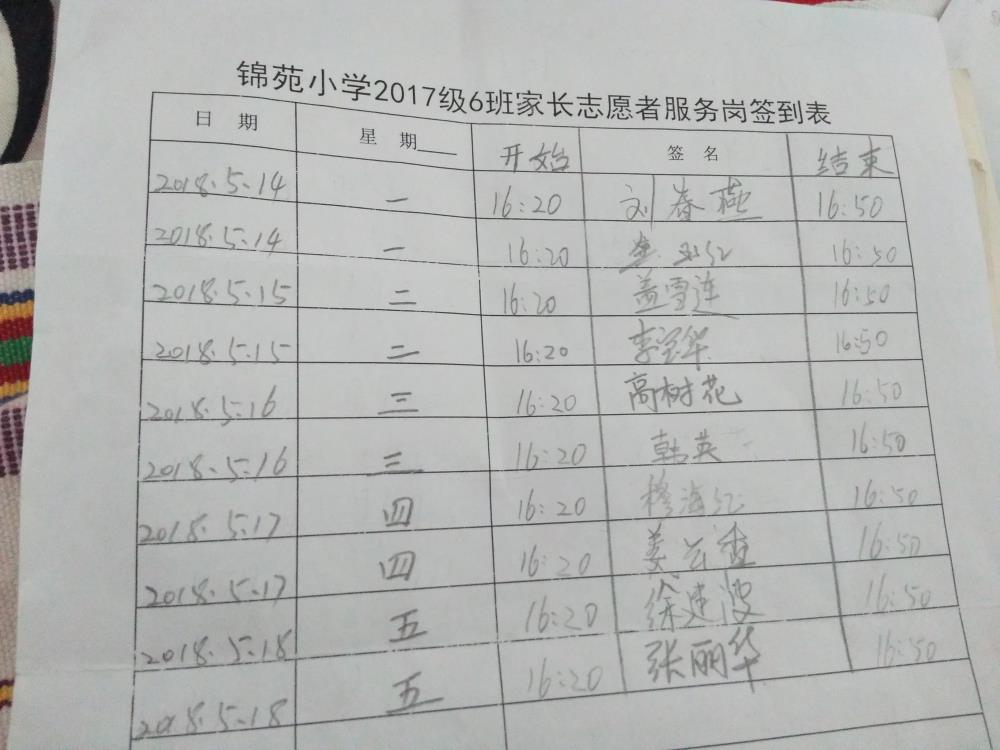 锦苑小学2017级6班家长志愿者服务岗签到表
日 期 星 期 开始 签 名 结束
2018.5.14 一 16:20 刘春燕 16:50
2018.5.14 一 16:20 16:50
2018.5.15 二 16:20 盖雪连 16:50
2018.5.15 二 16:20 李宝华 16:50
2018.5.16 三 16:20 高树花 16:50
2018.5.16 三 16:20 韩英 16:50
2018.5.17 四 16:20 穆海红 16:50
2018.5.17 四 16:20 姜云 16:50
2018.5.18 五 16:20 徐建波 16:50
2018.5.18 五 16:20 张丽华 16:50